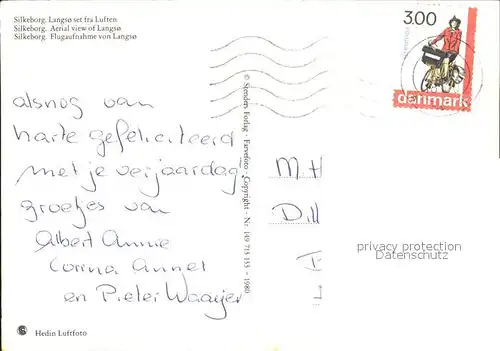 Silkeborg. Langsø set fra Luften
Silkeborg. Aerial view of Langsø
Silkeborg. Flugaufnahme von Langsø
3.00
danmark
alsnog van
harte gefeliciteerd
met je verjaardag.
groetjes van
Albert Annie
Corina Annet
en Pieter Waaijer
© Stenders Forlag - Farvefoto - Copyright - Nr. 149 715 153 - 1980
M H
Dill
privacy protection
Datenschutz
Hedin Luftfoto